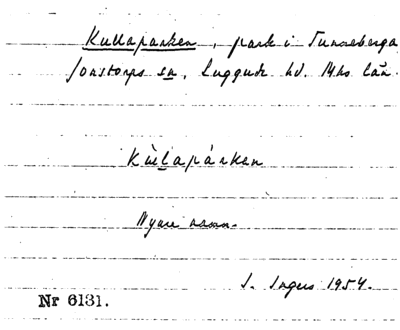 Kullaparken, park i Tunneberga,
Jonstorps sn, Luggude hd. Mhs län.
Kùllapárken
Nyare namn.
I. Ingers 1954.
Nr 6131.